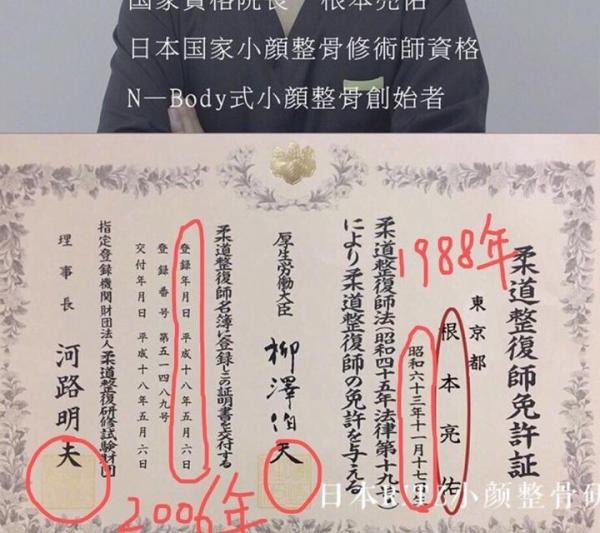 国家資格院長 根本亮佑
日本国家小顔整骨修術師資格
N—Body式小顔整骨創始者
柔道整復師免許証
東京都
根本亮佑
昭和六十三年十一月十七日
1988年
柔道整復師法(昭和四十五年法律第十九号)
により柔道整復師の免許を与える
厚生労働大臣 柳澤伯夫
柔道整復師名簿に登録しこの証明書を交付する
登録年月日 平成十八年五月六日
登録番号 第五一四八九号
交付年月日 平成十八年五月六日
指定登録機関財団法人柔道整復研修試験財団
理事長 河路明夫
2006年
日本 小颜整骨研